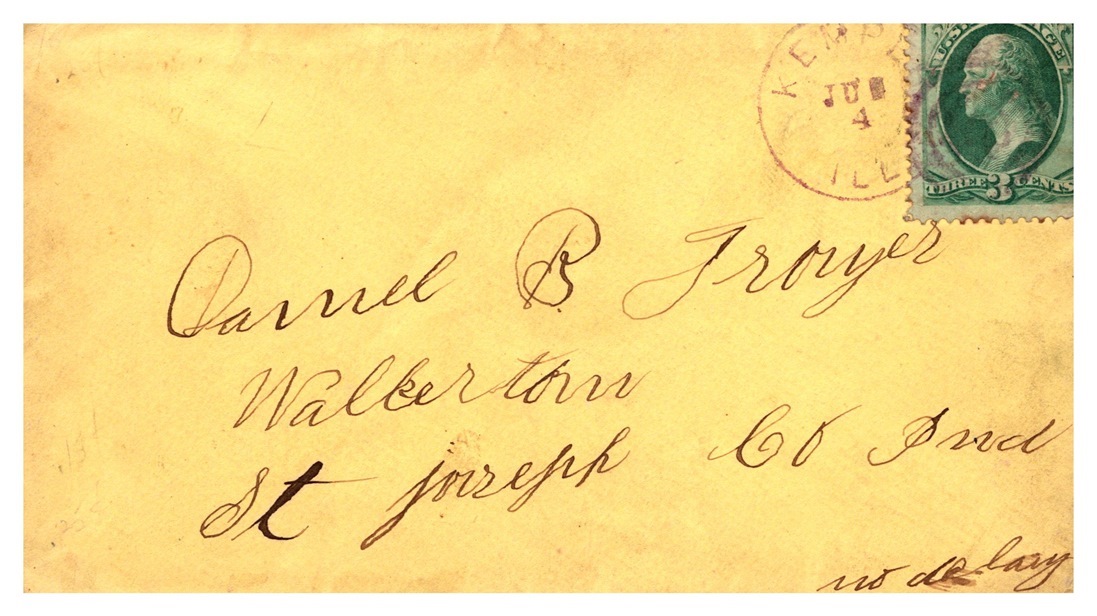 JU
4
ILL
THREE 3 CENTS
Daniel B Troyer
Walkerton
St Joseph Co Ind
no delay